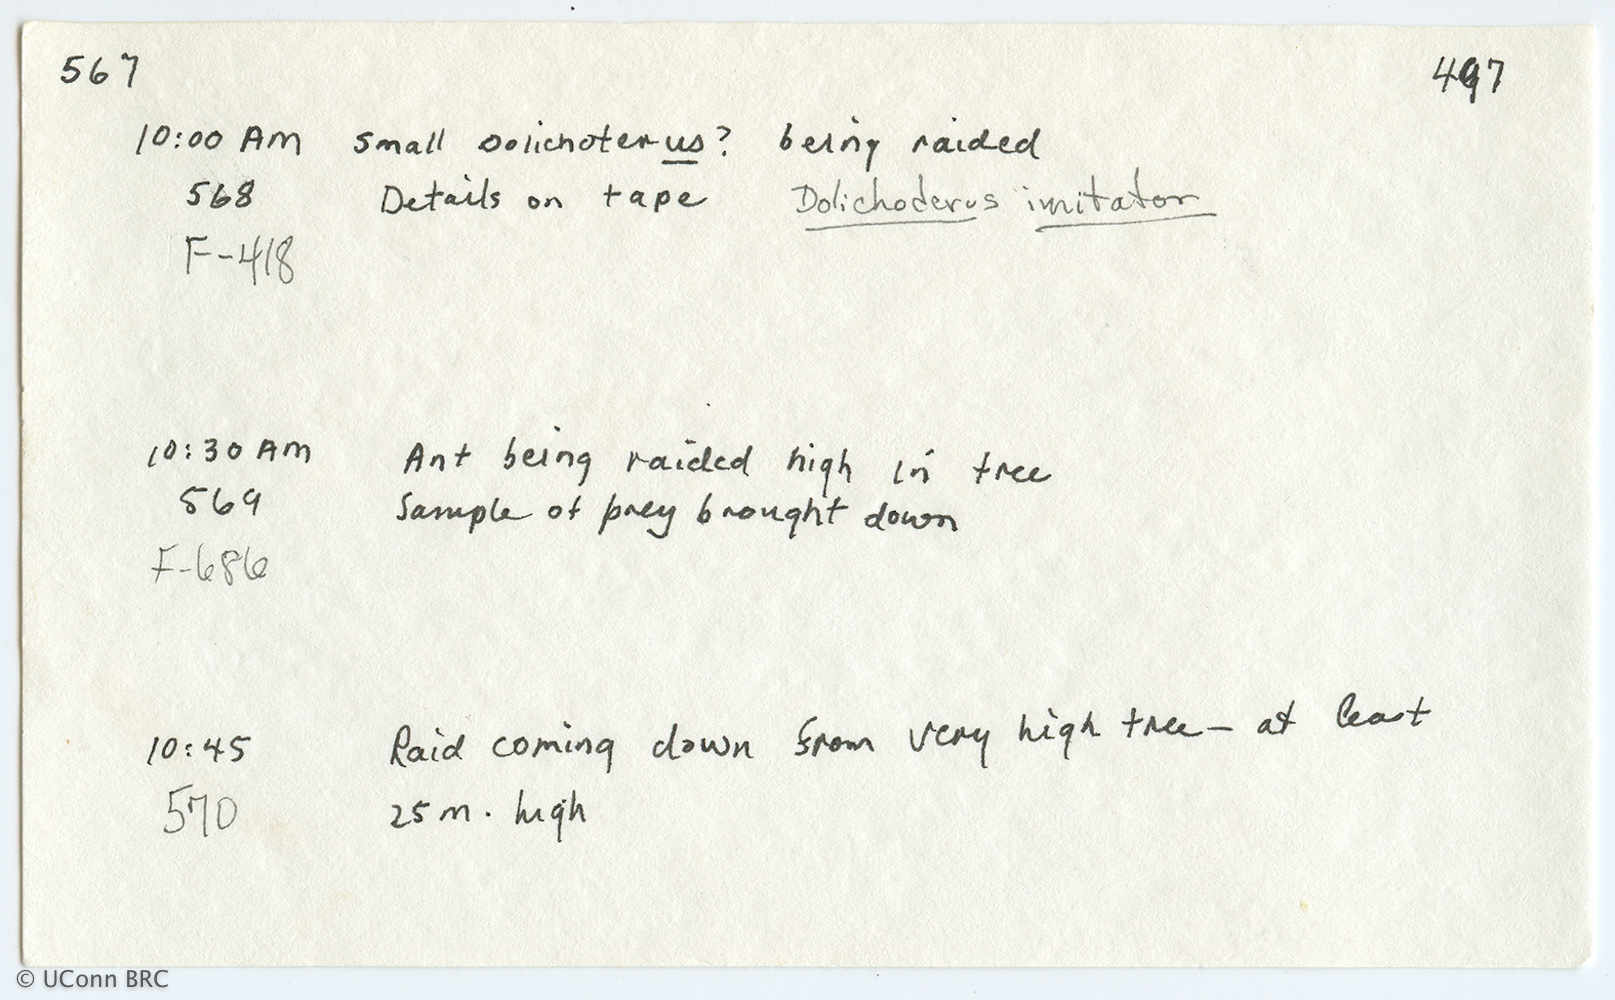 567 497
10:00 AM small Dolichoterus? being raided
568 Details on tape Dolichoderus imitator
F-418
10:30 AM Ant being raided high in tree
569 Sample of prey brought down
F-686
10:45 Raid coming down from very high tree – at least
570 25 m. high
© UConn BRC